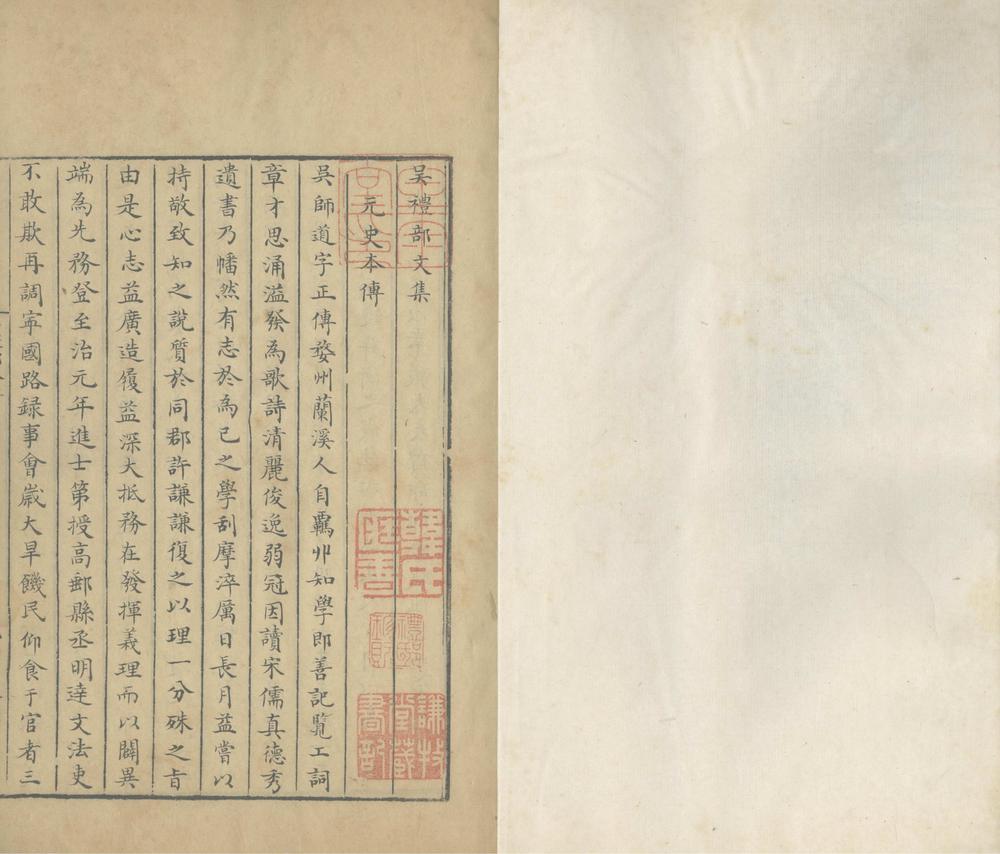 吳禮部文集
元史本傳
吳師道字正傳婺州蘭溪人自羈丱知學即善記覽工詞
章才思涌溢發為歌詩清麗俊逸弱冠因讀宋儒真德秀
遺書乃幡然有志於為己之學刮摩淬厲日長月益嘗以
持敬致知之說質於同郡許謙謙復之以理一分殊之旨
由是心志益廣造履益深大抵務在發揮義理而以闢異
端為先務登至治元年進士第授高郵縣丞明達文法吏
不敢欺再調寧國路録事會嵗大旱饑民仰食于官者三
韓氏
藏書
謙牧堂藏書記